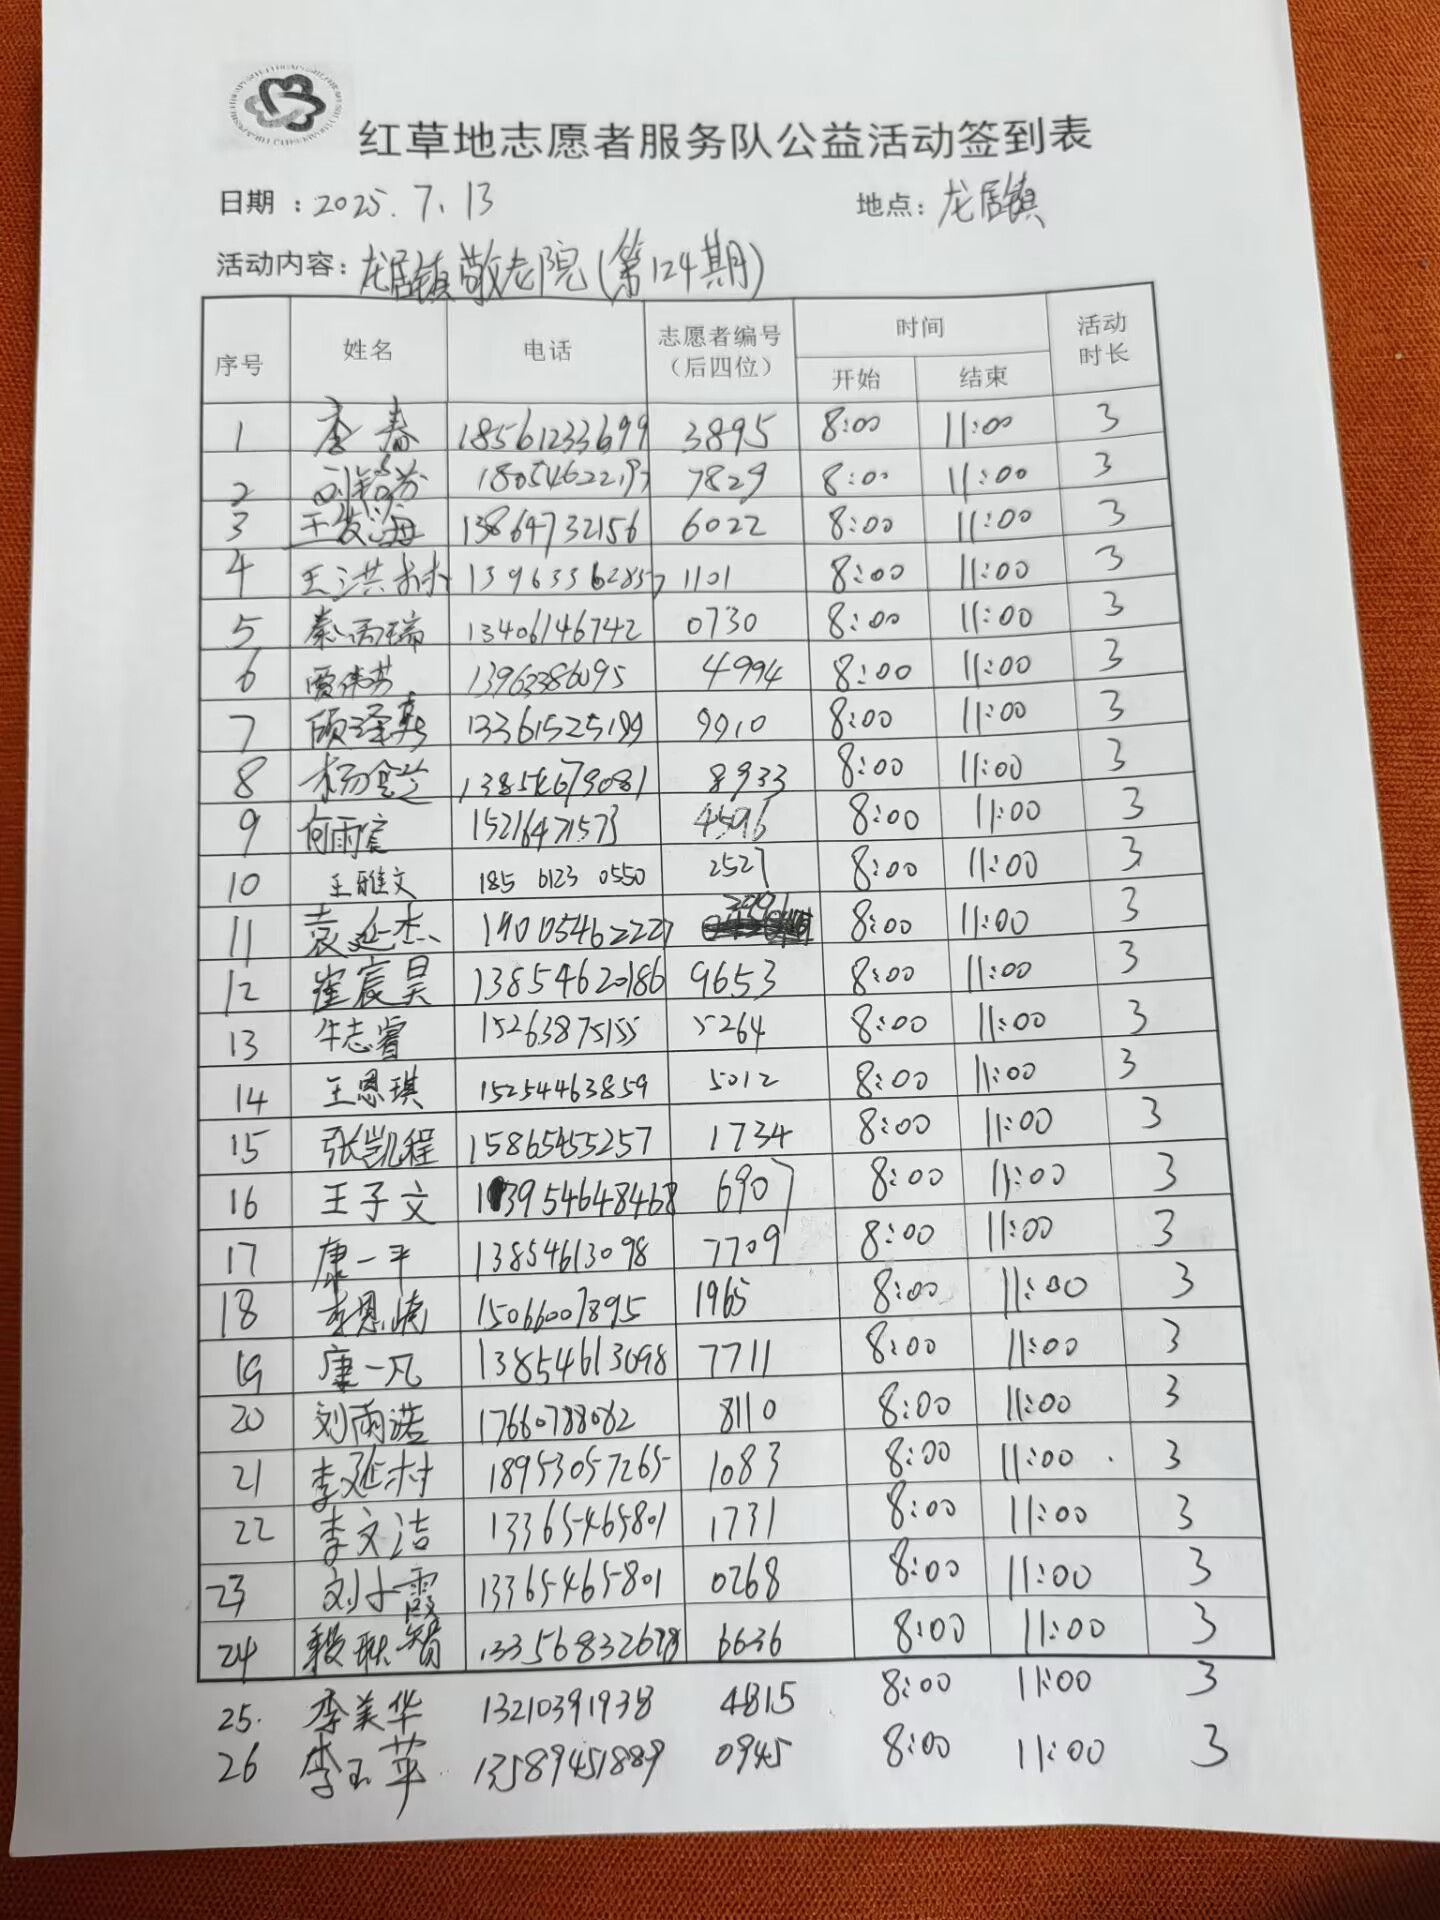 红草地志愿者服务队公益活动签到表
日期：2025.7.13 地点：龙居镇
活动内容：龙居镇敬老院(第124期)
序号 姓名 电话 志愿者编号（后四位） 时间 开始 结束 活动时长
1 李春 18561233699 3895 8:00 11:00 3
2 18054622193 7829 8:00 11:00 3
3 13864732156 6022 8:00 11:00 3
4 王洪村 13963362857 1101 8:00 11:00 3
5 秦丙瑞 13406146742 0730 8:00 11:00 3
6 贾伟芳 13963386095 4994 8:00 11:00 3
7 顾泽 13361525199 9910 8:00 11:00 3
8 杨金芝 13854679081 8933 8:00 11:00 3
9 何雨宸 15216471573 4596 8:00 11:00 3
10 王雅文 185 6123 0550 2527 8:00 11:00 3
11 袁延杰 19005462227 8:00 11:00 3
12 崔宸昊 13854620186 9653 8:00 11:00 3
13 牛志睿 15263875155 5264 8:00 11:00 3
14 王恩琪 15254463859 5012 8:00 11:00 3
15 张凯程 15865455257 1734 8:00 11:00 3
16 王子文 13954648468 6907 8:00 11:00 3
17 康一平 13854613098 7709 8:00 11:00 3
18 李恩 15066007895 1965 8:00 11:00 3
19 康一凡 13854613098 7711 8:00 11:00 3
20 刘雨诺 17660788062 8110 8:00 11:00 3
21 李延村 18953057265 1083 8:00 11:00 3
22 李文洁 13365465801 1731 8:00 11:00 3
23 刘小霞 13365465801 0268 8:00 11:00 3
24 联智 13356832678 6636 8:00 11:00 3
25. 李美华 13210391938 4815 8:00 11:00 3
26 李玉苹 13589451889 0945 8:00 11:00 3